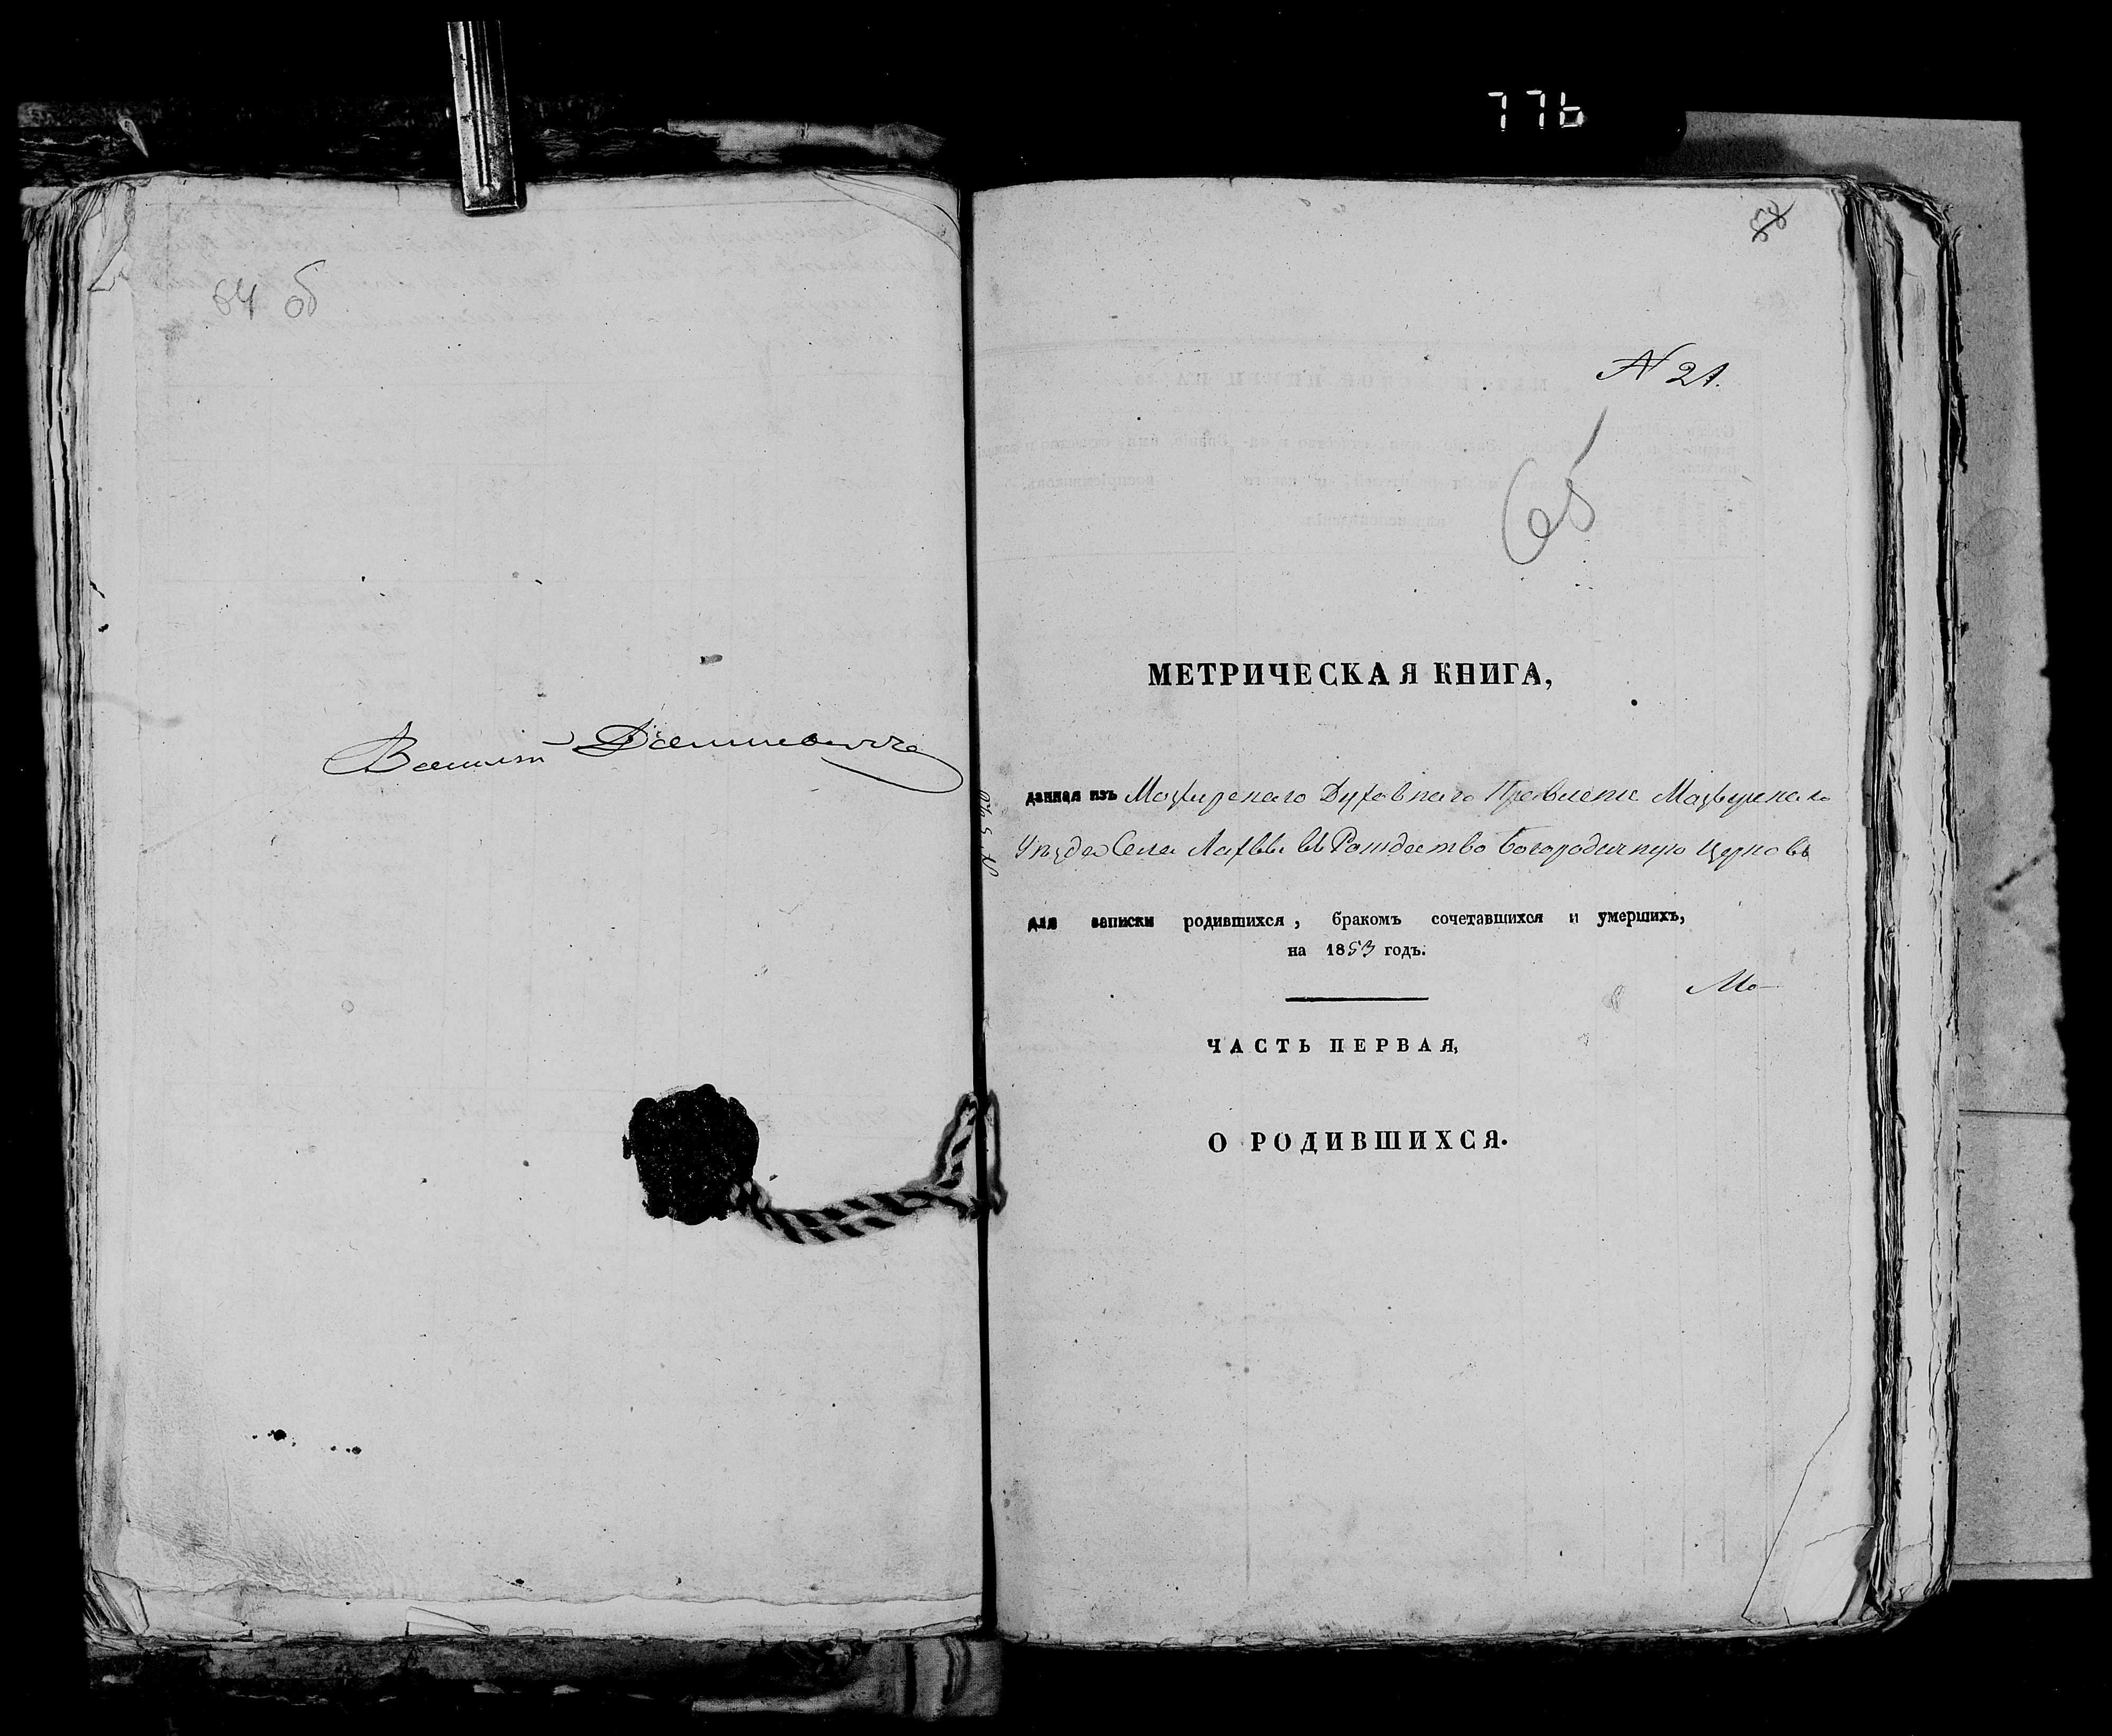 776
64 об
Василій Данилевичъ
58
N 21.
65
МЕТРИЧЕСКАЯ КНИГА,
данная изъ Мозырскаго Духовнаго Правленія Мозырскаго
Уѣзда Села Лахвы въ Рождество Богородичную Церковь
для записки родившихся, бракомъ сочетавшихся и умершихъ,
на 1853 годъ.
Мо-
ЧАСТЬ ПЕРВАЯ,
О РОДИВШИХСЯ.